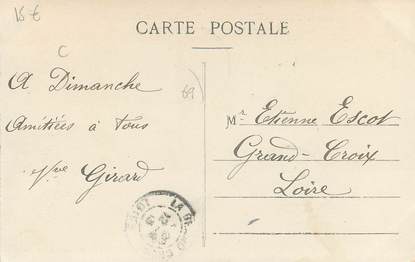 15 €
CARTE POSTALE
C
69
A Dimanche
Amitiées à tous
Vve Girard
Mr Etienne Escot
Grand-Croix
Loire